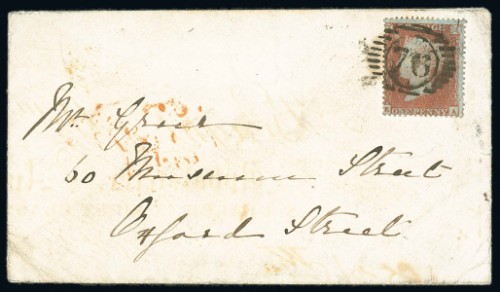 76
ONE PENNY
Mr
60 Museum Street
Oxford Street